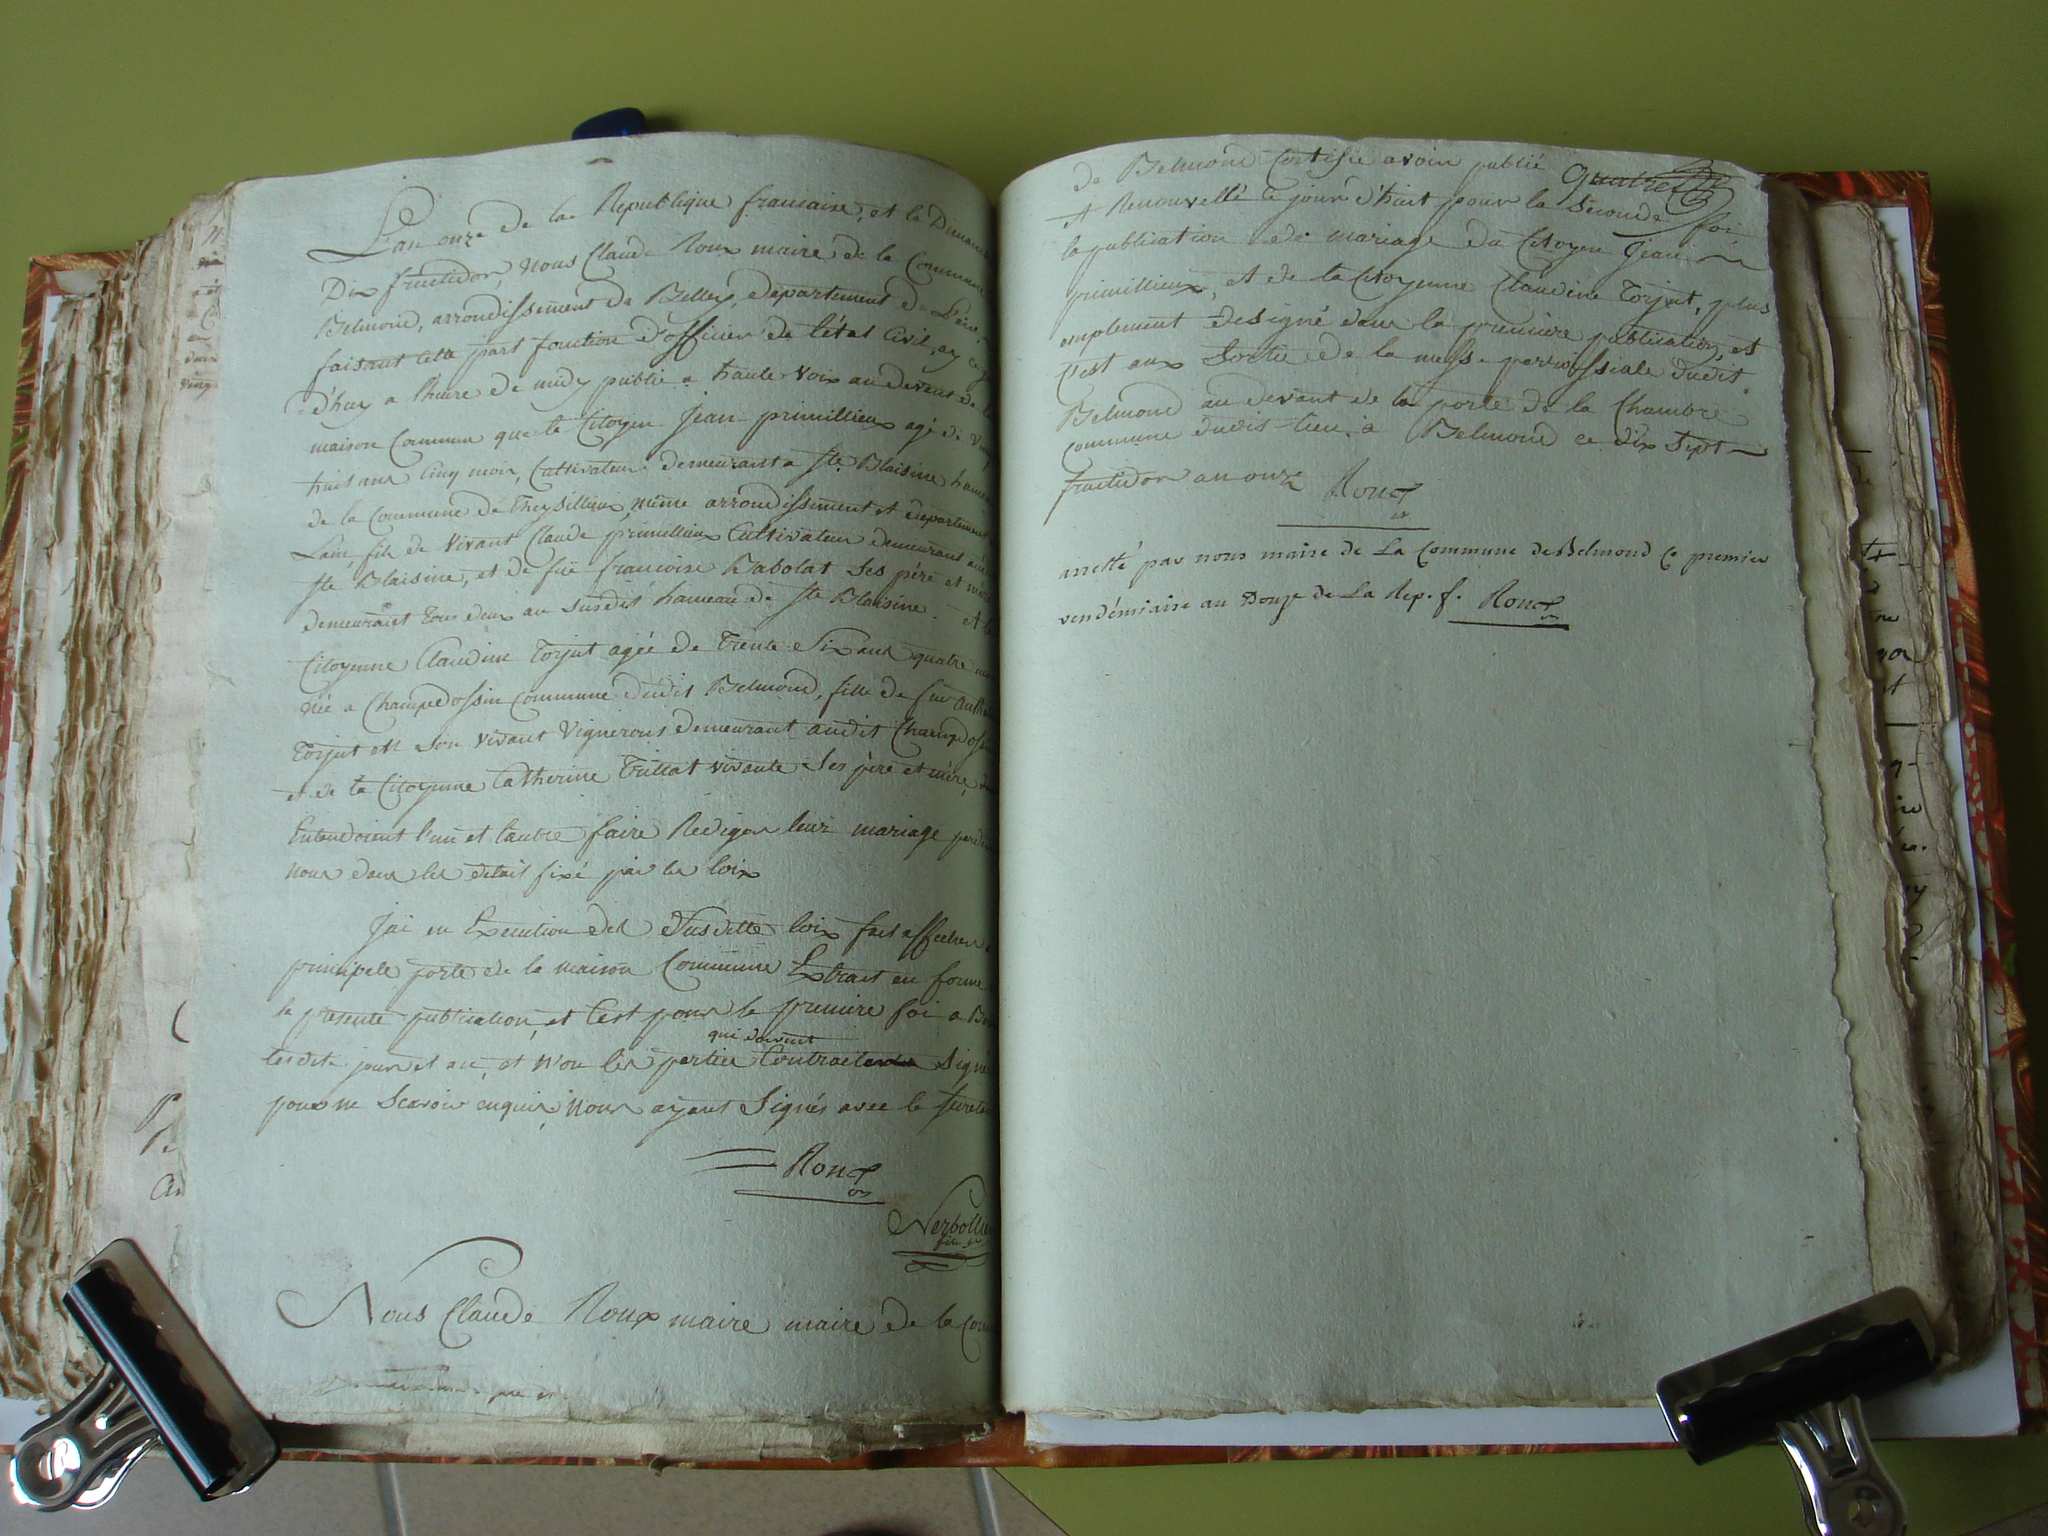 L'an onze de la Republique francaise, et le Dimanc
Dix fructidor, nous Claude Roux maire de la Commune
Belmond, arrondissement de Belley, departement de L'ain,
faisant cette part fonction d'officier de l'état Civil, ay ce j
d'huy a l'heure de midy publié a haute voix au devent de la
maison Commun que le Citoyen Jean primillieux agé de Vingt
huit ans Cinq mois, Cultivateur demeurant a Ste Blaisine hameau
de la Commune de Cheysillieux, même arrondissement et departement
L'ain, fils de vivant Claude primillieux Cultivateur demeurant au
Ste Blaisine, et de füe francoise Rabolat ses père et mère
demeurant tous deux au susdit hameau de Ste Blaisine. Et la
Citoyenne Claudine Torjut agée de Trente Six ans quatre moi
née a Champdossin Commune dudit Belmond, fille de feu Anth
Torjut en son vivant Vigneron demeurant audit Champdoss
et de la Citoyenne Catherine Trittat vivante ses père et mère,
Entendoient l'un et l'autre faire Rediger leur mariage parde
nous dans les delait fixé par les loix
J'ai en Execution des susdittes loix fait afficher a
principale porte de la maison Commune Extrait en forme
la presente publication, et C'est pour la premiere foi a Be
lesdits jour et an, et n'on les parties qui doivent Contracter signé
pour ne Scavoir enquis, Nous ayant Signés avec le Secreta
Roux
Nerbollie
Nous Claude Roux maire maire de la Com
de Belmond Certifie avoir publié quatre
Et Renouvellé ce jour d'huit pour la seconde foi
la publication de mariage du Citoyen Jean
primillieux, et de la Citoyenne Claudine Torjut, plus
amplement designé dans la premiere publication, et
C'est aux Sortie de la messe parroissiale dudit
Belmond au devant de la porte de la Chambre
commune dudit lieu, a Belmond ce dix sept
fructidor an onze Roux
arretté par nous maire de La Commune de Belmond ce premier
vendémiaire an Douze de La Rep. f. Roux